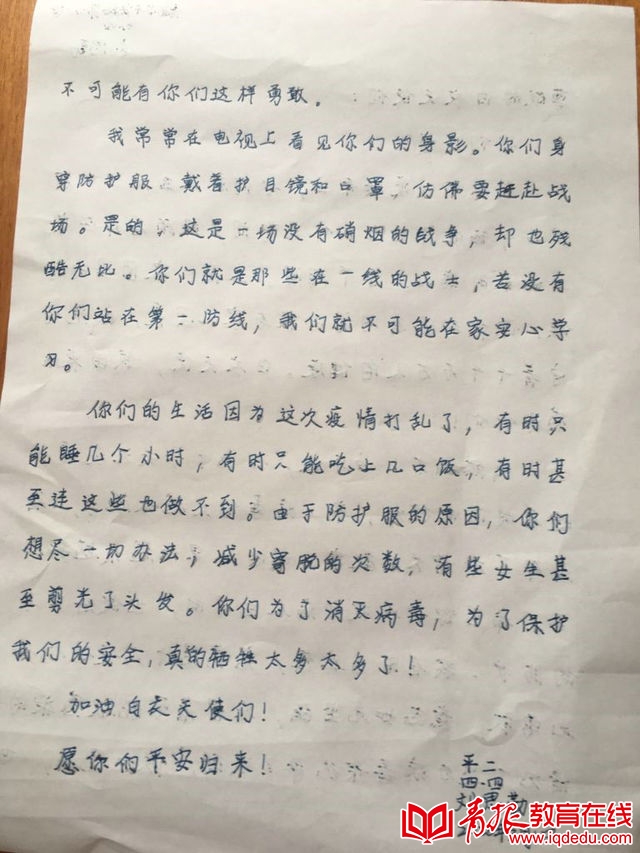 不可能有你们这样勇敢。
我常常在电视上看见你们的身影。你们身
穿防护服，戴着护目镜和口罩，仿佛要赶赴战
场。是的，这是一场没有硝烟的战争，却也残
酷无比。你们就是那些在一线的战士，若没有
你们站在第一防线，我们就不可能在家安心学
习。
你们的生活因为这次疫情打乱了，有时只
能睡几个小时，有时只能吃上几口饭，有时甚
至连这些也做不到。由于防护服的原因，你们
想尽一切办法，减少穿脱的次数，有些女生甚
至剪光了头发。你们为了消灭病毒，为了保护
我们的安全，真的牺牲太多太多了！
加油白衣天使们！
愿你们平安归来！
平二
四.四
刘思勤
青报教育在线
www.iqdedu.com